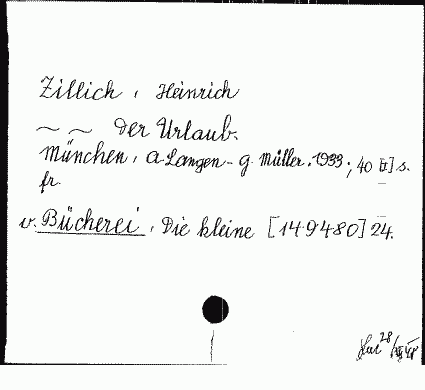 Zillich, Heinrich
~ ~ Der Urlaub.
München, A. Langen - G. Müller. 1933; 40 [1] s.
fr.
v. Bücherei, Die kleine [149480] 24.
28